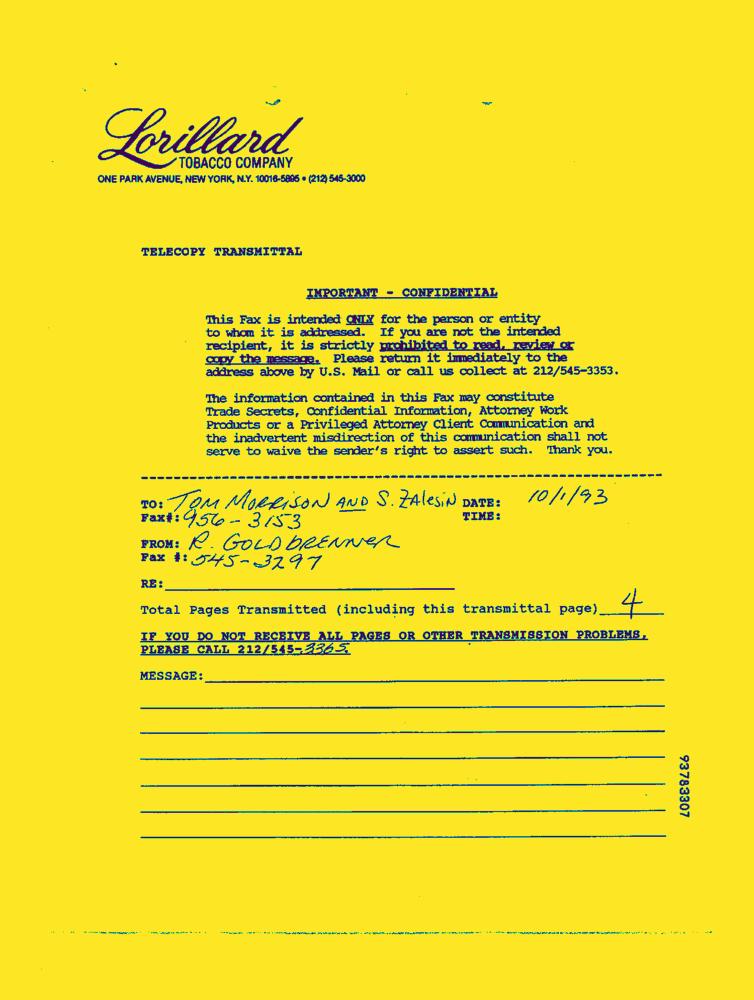 Lorillard
TOBACCO COMPANY
ONE PARK AVENUE, NEW YORK, N.Y. 10016-5895 • (212) 545-3000
TELECOPY TRANSMITTAL
IMPORTANT - CONFIDENTIAL
This Fax is intended ONLY for the person or entity
to whom it is addressed. If you are not the intended
recipient, it is strictly prohibited to read, review or
copy the message. Please return it immediately to the
address above by U.S. Mail or call us collect at 212/545-3353.
The information contained in this Fax may constitute
Trade Secrets, Confidential Information, Attorney Work
Products or a Privileged Attorney Client Communication and
the inadvertent misdirection of this communication shall not
serve to waive the sender's right to assert such. Thank you.
TO: TOM MORRISON AND S. ZALESIN DATE: 10/1/93
Fax#: 956-3153 TIME:
FROM: R. GOLDBRENNER
Fax #: 545-3297
RE:
Total Pages Transmitted (including this transmittal page) 4
IF YOU DO NOT RECEIVE ALL PAGES OR OTHER TRANSMISSION PROBLEMS,
PLEASE CALL 212/545-3365.
MESSAGE:
93783307